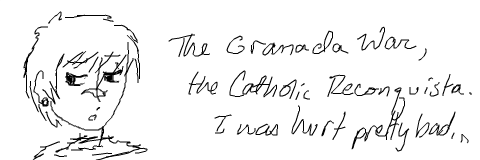 The Granada War,
the Catholic Reconquista.
I was hurt pretty bad..